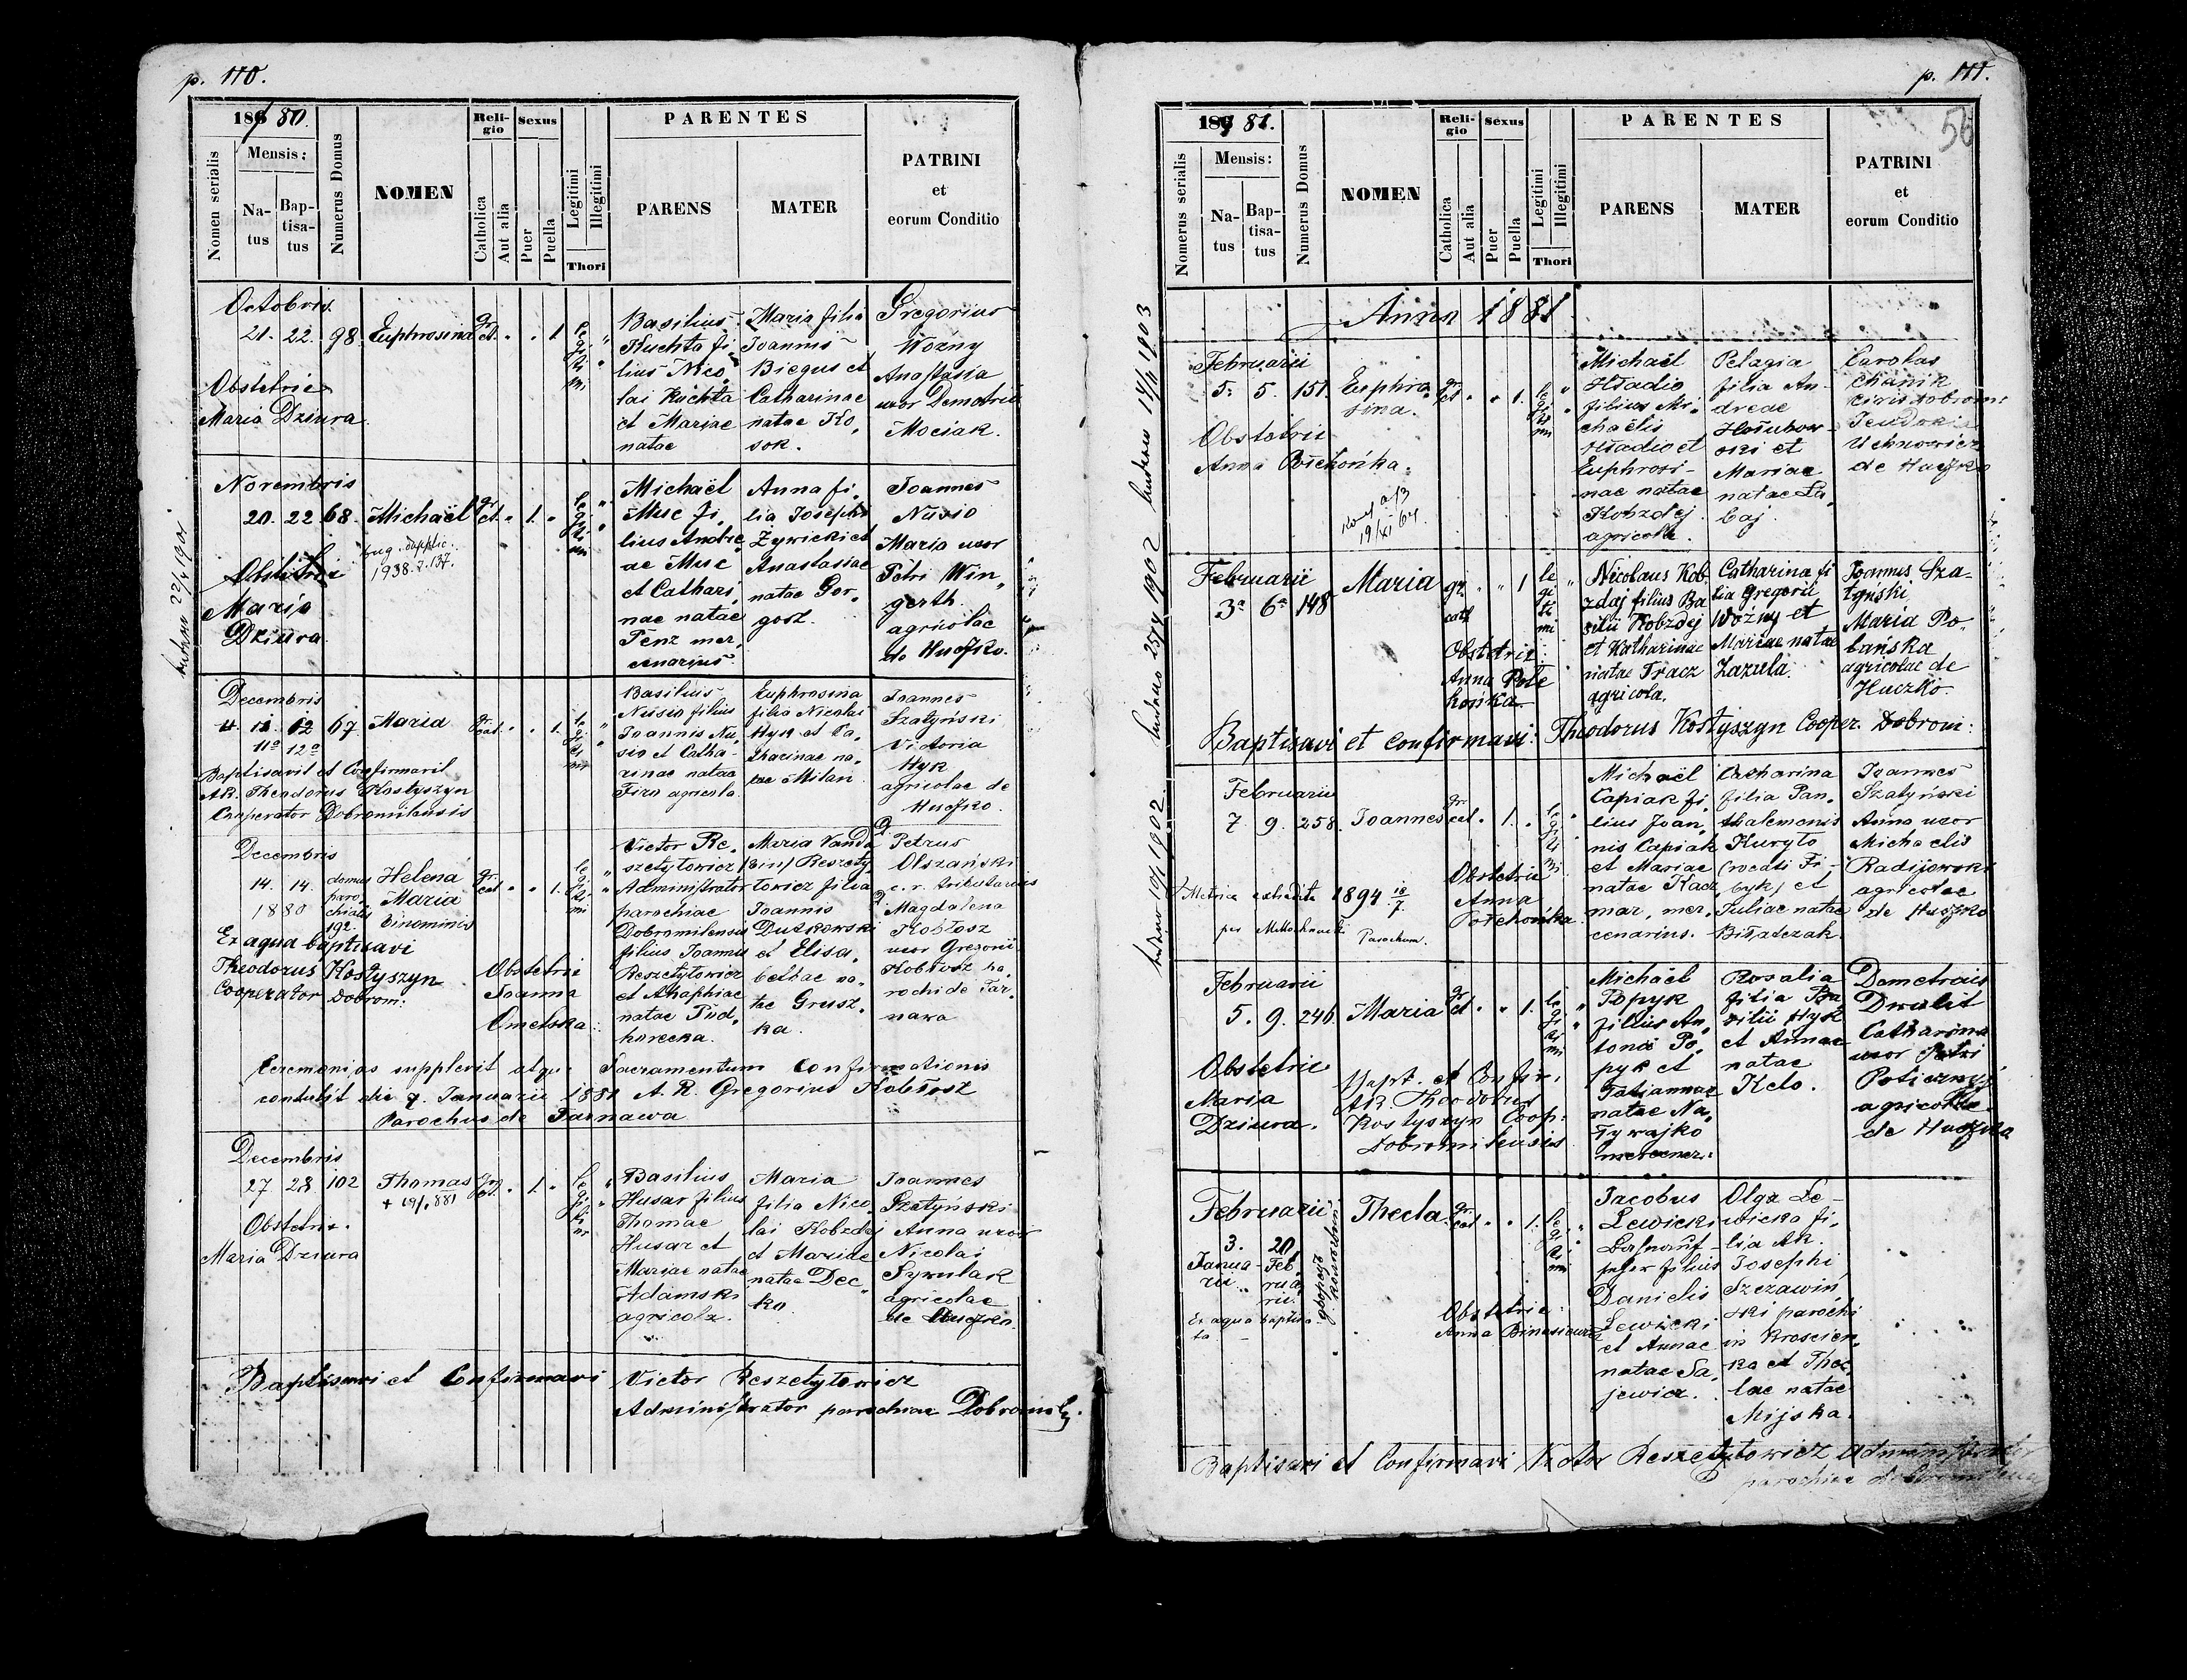 p. 110.
1880.
Nomen serialis
Mensis:
Natus
Baptisatus
Numerus Domus
NOMEN
Religio
Catholica
Aut alia
Sexus
Puer
Puella
Legitimi
Illegitimi
Thori
PARENTES
PARENS
MATER
PATRINI
et
eorum Conditio
Octobris
21. 22. 98. Euphrosina gr. ct. " " 1. legitimi
Basilius
Kuchta fi-
lius Nico
lai Kuchta
et Mariae
natae
Maria filia
Joannis
Biegus et
Catharinae
natae Ko,
sok.
Gregorius
Wozny
Anastasia
uxor Demetrii
Mociak.
Obstetrix
Maria Dziura
Novembris
20. 22. 68. Michaël gr. ct. " 1. " legitimi
1938. 2. 137.
Michaël
Musc fi,
lius Andre
ae Musc
et Cathari,
nae natae
Penz mer,
cenarius.
Anna fi,
lia Josephi
Zywicki et
Anastasiae
natae Gor,
gosz.
Joannes
Nusio
Maria uxor
Petri Win,
gerth
agricolae
de Huczko.
Obstetrix
Maria
Dziura
Decembris
12 67 Maria gr. cat. " " 1. legitimi
11a 12a
Basilius
Nusio filius
Joannis Nu,
sio et Catha-
rinae natae
Firo agricola.
Euphrosina
filia Nicolai
Hyk et Ca,
tharinae na,
tae Milan
Joannes
Szatyński
Victoria
Hyk
agricolae de
Huczko.
Baptisavit et Confirmavit
AR. Theodorus Kostyszyn
Cooperator Dobromilensis
Decembris
14. 14. domus parochialis 192. Helena Maria binominis gr. cat. " " 1. legitimi
1880
Victor Re,
szetylowicz
Administrator
parochiae
Dobromilensis
filius Joannis
Reszetylowicz
et Ahaphiae
natae Pod,
horecka.
Maria Vanda
/bin/ Reszety,
lowicz filia
Joannis
Dutkowski
et Elisa,
bethae na,
tae Grusz,
ka.
Petrus
Olszański
c. r. tributarius
Magdalena
Kobłosz
uxor Gregorii
Kobłosz pa,
rochi de Tar,
nawa
Ex aqua baptisavi
Theodorus Kostyszyn
Cooperator Dobrom:
Obstetrix
Joanna
Omelska
Ceremonias supplevit atque Sacramentum Confirmationis
contulit die 9. Januarii 1881 A. R. Gregorius Kobłosz
Parochus de Tarnawa
Decembris
27 28 102 Thomas gr. ct. " 1. " legitimi
Basilius
Husar filius
Thomae
Husar et
Mariae natae
Adamski
agricola.
Maria
filia Nico,
lai Kobzdej
et Mariae
natae Dec,
ko
Joannes
Szatyński
Anna uxor
Nicolai
Sywulak
agricolae
de Huczko.
Obstetrix.
Maria Dziura
Baptisavi et Confirmavi Victor Reszetylowicz
Administrator parochiae Dobromil.
p. 111.
56
1881.
Nomerus serialis
Mensis:
Natus
Baptisatus
Numerus Domus
NOMEN
Religio
Catholica
Aut alia
Sexus
Puer
Puella
Legitimi
Illegitimi
Thori
PARENTES
PARENS
MATER
PATRINI
et
eorum Conditio
Anno 1881
Februarii
5. 5. 151. Euphrosina. gr. ct " " 1. legitimi
Michaël
Hładio
filius Mi,
chaëlis
Hładio et
Euphrosi-
nae natae
Kobzdej
agricola.
Pelagia
filia An-
dreae
Hołubow-
ski et
Mariae
natae
Carolus
Teodozia
Uchnowicz
de Huczko
Obstetrix
Anna Połchońka.
19/XI 64.
Februarii
3a 6a 148 Maria gr. cath " " 1 legitimi
Nicolaus Kob-
zdaj filius Ba
silii Kobzdej
et Katharinae
natae Tracz
agricola.
Catharina fi
lia Gregorii
Woźny et
Mariae natae
Zazula.
Joannes Sza-
tyński
Maria Po-
lańska
agricolae de
Huczko
Obstetrix:
Anna Połchońka.
Baptisavi et confirmavi: Theodorus Kostyszyn Cooper. Dobrom:
Februarii
7. 9. 258. Joannes gr. cat. " 1. " legitimi
Michaël
Capiak fi,
lius Joan,
nis Capiak
et Mariae
natae Kacz,
mar, mer,
cenarius.
Catharina
filia Pan,
thalemonis
Kuryto
(vocati Fi,
byk) et
Juliae natae
Joannes
Szatyński
Anna uxor
Michaelis
Radijowski
agricolae
de Huczko
Obstetrix
Anna
Połchońka.
Metrica extradita 1894 18/7.
per
Parochum.
Februarii
5. 9. 246. Maria gr. ct " " 1. legitimi
Michaël
Popyk
filius An,
tonii Po,
pyk et
Tatiannae
natae Na,
tywajko
mercenar:
Rosalia
filia Ba,
silii Hyk
et Annae
natae
Kelo.
Demetrius
Drulit
Catharina
uxor Petri
agricolae
de Huczko
Obstetrix
Maria
Dziura.
Bapt. et Confir.
AR. Theodorus
Kostyszyn Coop:
Dobromilensis
Februarii
3. 20 Thecla. gr. cat " " 1. legitimi
Januarii Februarii
Ex aqua baptisata
Jacobus
Lewicki
filius
Danielis
Lewicki
et Annae
natae Sa,
jewicz.
Olga Le-
wicka fi,
lia AR.
Josephi
Szczawiń,
ski parochi
in Kroscien,
ko et Thec
lae natae
Mijska.
Obstetrix:
Anna Binasiewicz
Baptisavi et Confirmavi Victor Reszetylowicz administrator
parochiae